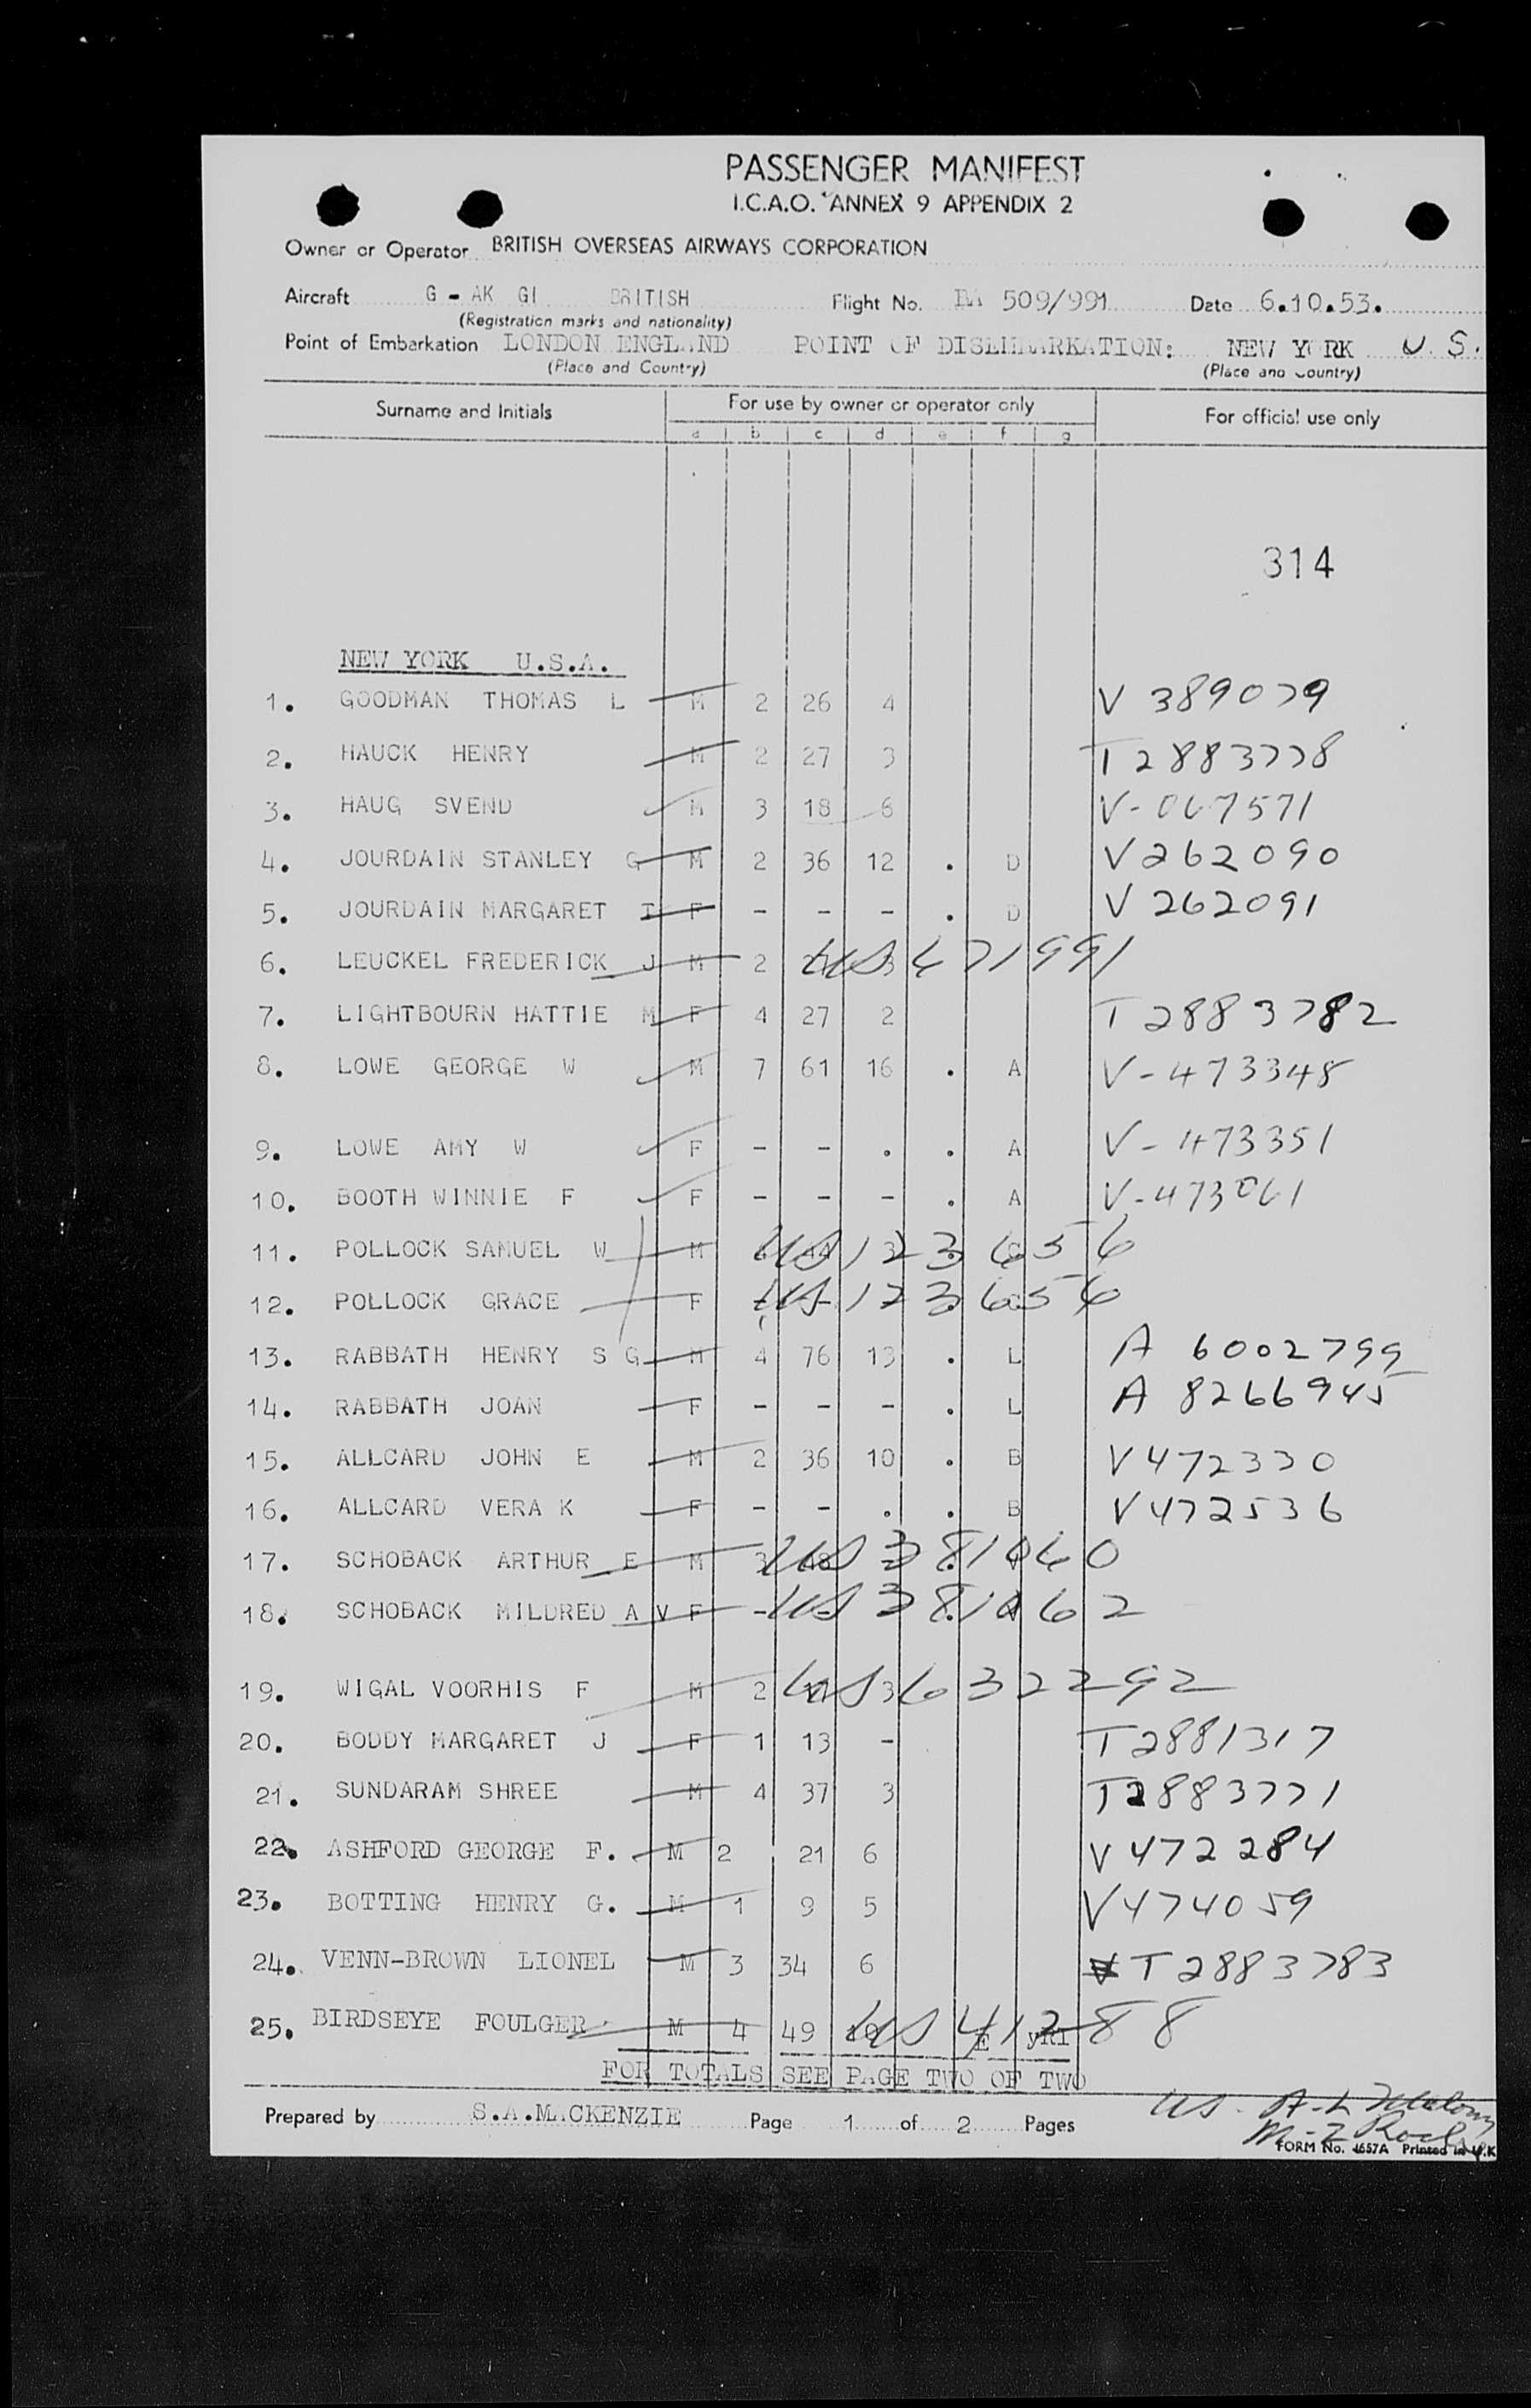 PASSENGER MANIFEST
I.C.A.O. ANNEX 9 APPENDIX 2
Owner or Operator BRITISH OVERSEAS AIRWAYS CORPORATION
Aircraft G - AK GI BRITISH Flight No. BA 509/991 Date 6.10.53.
(Registration marks and nationality)
Point of Embarkation LONDON ENGLAND POINT OF DISEMBARKATION: NEW YORK U. S.
(Place and Country) (Place and Country)
Surname and Initials For use by owner or operator only For official use only
a b c d e f g
314
NEW YORK U.S.A.
1. GOODMAN THOMAS L M 2 26 4 V 389079
2. HAUCK HENRY M 2 27 3 T2883778
3. HAUG SVEND M 3 18 6 V-067571
4. JOURDAIN STANLEY G M 2 36 12 . D V262090
5. JOURDAIN MARGARET I F - - - . D V 262091
6. LEUCKEL FREDERICK J M 2 3 US 671991
7. LIGHTBOURN HATTIE M F 4 27 2 T 2883782
8. LOWE GEORGE W M 7 61 16 . A V-473348
9. LOWE AMY W F - - . . A V-473351
10. BOOTH WINNIE F F - - - . A V-473061
11. POLLOCK SAMUEL W M US 123656
12. POLLOCK GRACE F US 123656
13. RABBATH HENRY S G M 4 76 13 . L A 6002799
14. RABBATH JOAN F - - - . L A 8266945
15. ALLCARD JOHN E M 2 36 10 . B V472330
16. ALLCARD VERA K F - - . . B V472536
17. SCHOBACK ARTHUR E M 3 48 US 381060
18. SCHOBACK MILDRED A V F - US 381062
19. WIGAL VOORHIS F M 2 3 US 632292
20. BODDY MARGARET J F 1 13 - T2881317
21. SUNDARAM SHREE M 4 37 3 T2883771
22. ASHFORD GEORGE F. M 2 21 6 V472284
23. BOTTING HENRY G. M 1 9 5 V474059
24. VENN-BROWN LIONEL M 3 34 6 V T2883783
25. BIRDSEYE FOULGER M 4 49 US 41288
FOR TOTALS SEE PAGE TWO OF TWO
Prepared by S.A.MACKENZIE Page 1 of 2 Pages
US - A-L
M-Z
FORM No. 1657A Printed in U.K